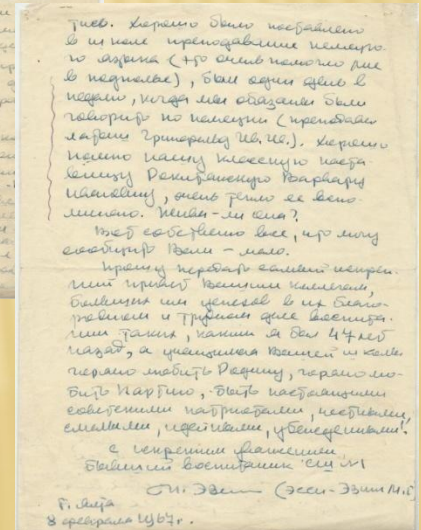 тнев. Хорошо было поставлено
в школе преподавание немецко-
го языка (что очень помогло мне
в подполье), был один день в
неделю, когда мы обязаны были
говорить по немецки (преподава
Григорьевна Ив. Ив.). Хорошо
помню нашу классную настав-
ницу Ракитянскую Варвару
Ивановну, очень тепло ее вспо-
минаю. Жива-ли она?
Вот собственно все, что могу
сообщить Вам – мало.
Прошу передать самый искрен-
ний привет Вашим коллегам,
больших им успехов в их благо-
родном и трудном деле воспита-
нии таких, каким я был 47 лет
назад, а учащимся Вашей школы
горячо любить Родину, горячо лю-
бить Партию, быть настоящими
советскими патриотами, честными,
смелыми, идейными, убежденными!
С искренним уважением
бывший воспитанник сш №1
(Эсси-Эзинг М.Г
г. Ялта
8 февраля 1967 г.